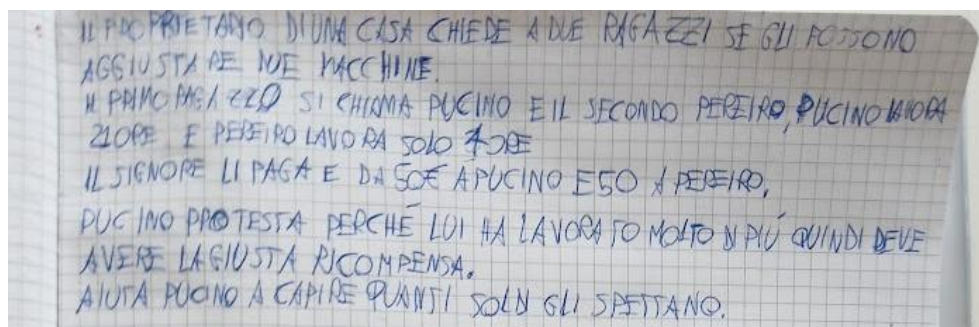 IL PROPRIETARIO DI UNA CASA CHIEDE A DUE RAGAZZI SE GLI POSSONO
AGGIUSTARE DUE MACCHINE.
IL PRIMO RAGAZZO SI CHIAMA PUCINO E IL SECONDO PEREIRO, PUCINO LAVORA
21 ORE E PEREIRO LAVORA SOLO 7 ORE
IL SIGNORE LI PAGA E DA 50€ A PUCINO E 50 A PEREIRO.
PUCINO PROTESTA PERCHÉ LUI HA LAVORATO MOLTO DI PIÚ QUINDI DEVE
AVERE LA GIUSTA RICOMPENSA.
AIUTA PUCINO A CAPIRE QUANTI SOLDI GLI SPETTANO.